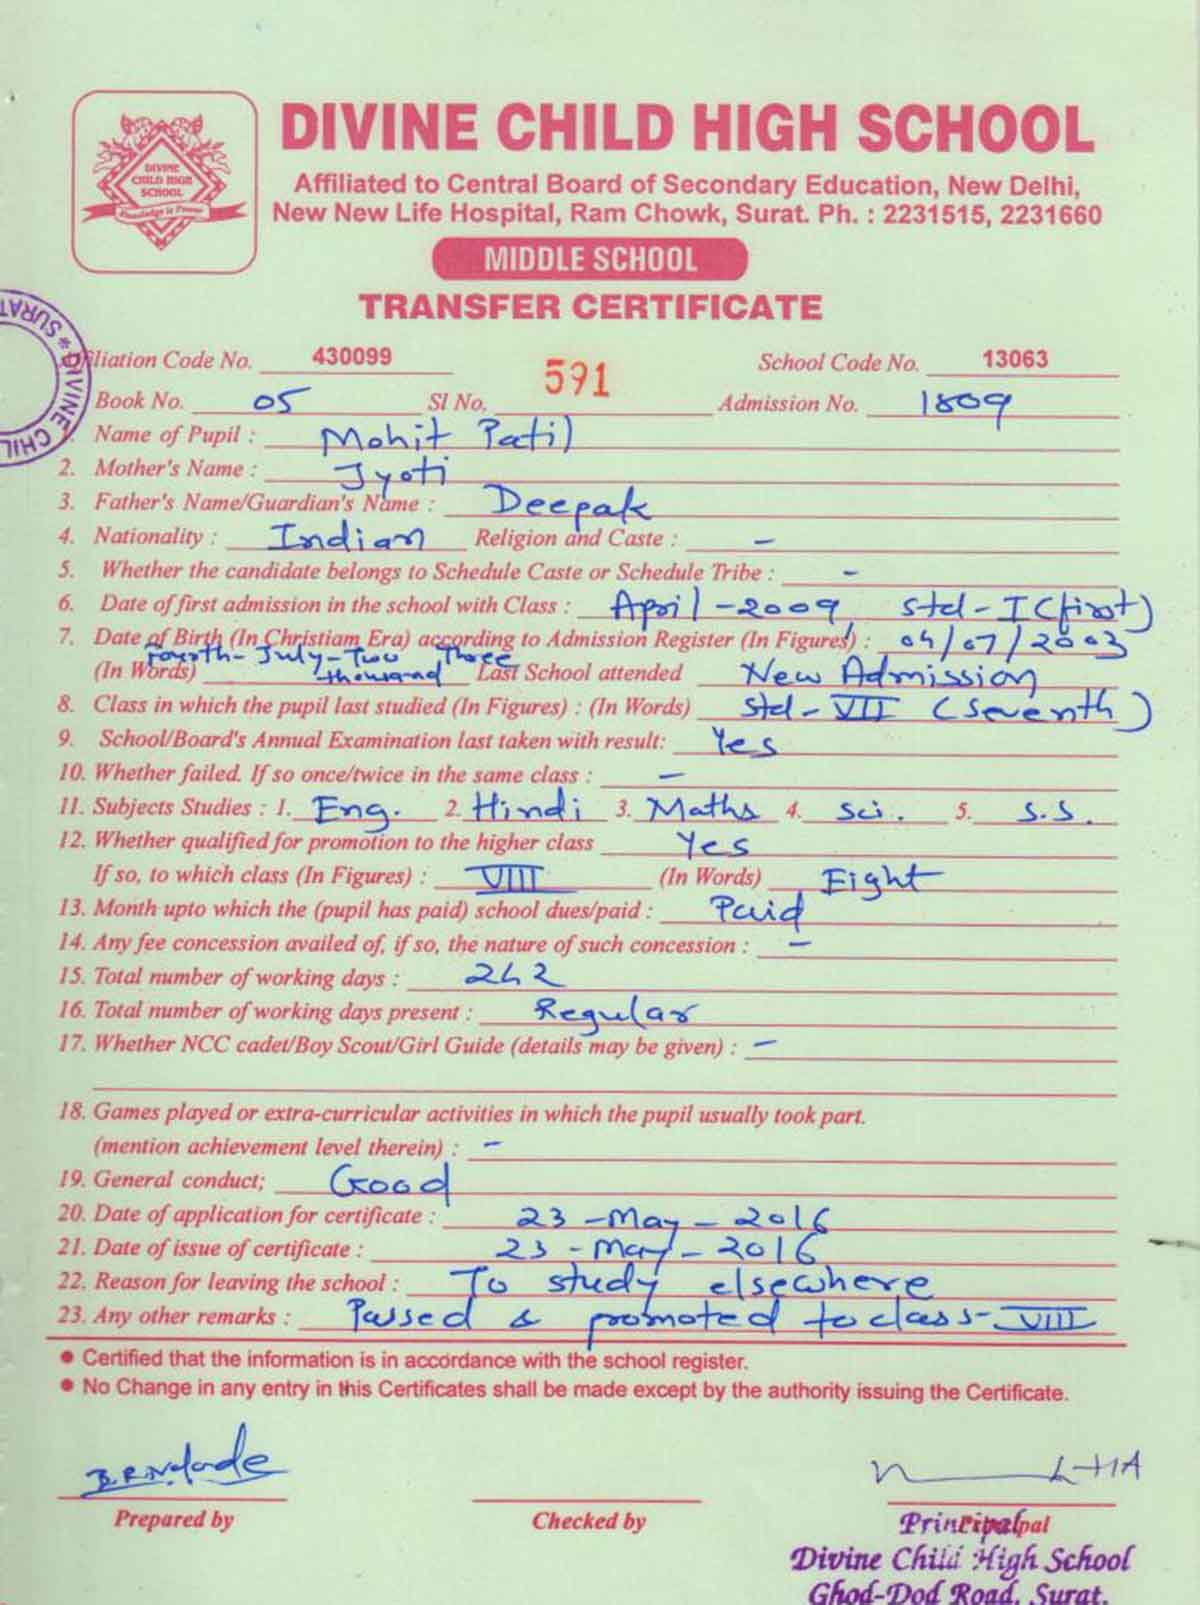 DIVINE CHILD HIGH SCHOOL
DIVINE
CHILD HIGH
SCHOOL
Knowledge is Power
Affiliated to Central Board of Secondary Education, New Delhi,
New New Life Hospital, Ram Chowk, Surat. Ph. : 2231515, 2231660
MIDDLE SCHOOL
TRANSFER CERTIFICATE
SURAT * DIVINE CHIL
filiation Code No. 430099 School Code No. 13063
Book No. 05 Sl No. 591 Admission No. 1809
Name of Pupil : Mohit Patil
2. Mother's Name : Jyoti
3. Father's Name/Guardian's Name : Deepak
4. Nationality : Indian Religion and Caste : -
5. Whether the candidate belongs to Schedule Caste or Schedule Tribe : -
6. Date of first admission in the school with Class : April -2009, Std - I (first)
7. Date of Birth (In Christiam Era) according to Admission Register (In Figures) : 04/07/2003
(In Words) Fourth-July-Two thousand Three Last School attended New Admission
8. Class in which the pupil last studied (In Figures) : (In Words) Std - VII (Seventh)
9. School/Board's Annual Examination last taken with result: Yes
10. Whether failed. If so once/twice in the same class : -
11. Subjects Studies : 1. Eng. 2. Hindi 3. Maths 4. Sci. 5. S.S.
12. Whether qualified for promotion to the higher class Yes
If so, to which class (In Figures) : VIII (In Words) Eight
13. Month upto which the (pupil has paid) school dues/paid : Paid
14. Any fee concession availed of, if so, the nature of such concession : -
15. Total number of working days : 242
16. Total number of working days present : Regular
17. Whether NCC cadet/Boy Scout/Girl Guide (details may be given) : -
18. Games played or extra-curricular activities in which the pupil usually took part.
(mention achievement level therein) : -
19. General conduct; Good
20. Date of application for certificate : 23 -May - 2016
21. Date of issue of certificate : 23 - May - 2016
22. Reason for leaving the school : To study elsewhere
23. Any other remarks : Passed & promoted to class - VIII
• Certified that the information is in accordance with the school register.
• No Change in any entry in this Certificates shall be made except by the authority issuing the Certificate.
Prepared by Checked by Principal
Principal
Divine Child High School
Ghod-Dod Road, Surat.